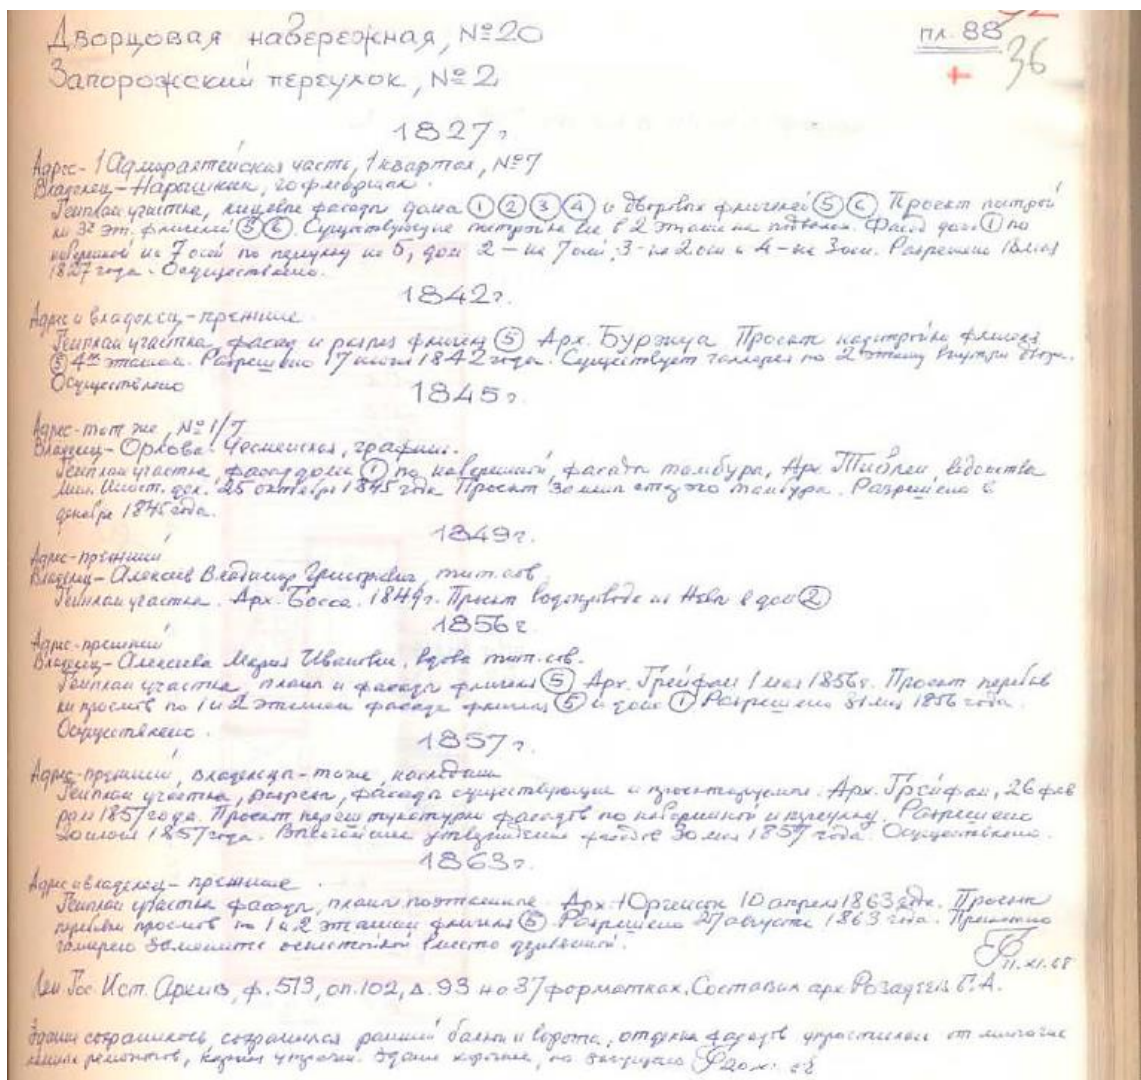 Дворцовая набережная, №20
пл. 88
Запорожский переулок, №2
36
1827г.
Адрес - 1 Адмиралтейская часть, 1 квартал, №7
Владелец - Нарышкин, гофмаршал.
Генплан участка, лицевые фасады дома ① ② ③ ④ и дворовых флигелей ⑤ ⑥. Проект построй
ки 3х эт. флигелей ⑤ ⑥. Существующие постройки все в 2 этажа на подвалах. Фасад дома ① по
набережной на 7 осей по переулку на 5, дом 2 - на 7 осей, 3 - на 2 оси и 4 - на 3 оси. Разрешено 18 мая
1827 года. Осуществлено.
1842г.
Адрес и владелец - прежние
Генплан участка, фасад и разрез флигеля ⑤ Арх. Буржуа Проект надстройки флигеля
⑤ 4м этажом. Разрешено 17 июля 1842 года. Существует галлерея по 2 этажу внутри двора.
Осуществлено
1845г.
Адрес - тот же, №1/7
Владелец - Орлова-Чесменская, графиня.
Генплан участка, фасад дома ① по набережной, фасады тамбура, Арх. ведомства
Мин. Иност. дел. 25 октября 1845 года Проект замены старого тамбура. Разрешено в
декабре 1845 года.
1849г.
Адрес - прежний
Владелец - Алексеев Владимир Григорьевич, тит. сов.
Генплан участка. Арх. Боссе. 1849г. Проект водопровода из Невы в дом ②
1856г.
Адрес - прежний
Владелец - Алексеева Мария Ивановна, вдова тит. сов.
Генплан участка, планы и фасады флигеля ⑤ Арх. Грейфан 1 мая 1856г. Проект перебив
ки просветов по 1 и 2 этажам фасада флигеля ⑤ и дома ① Разрешено 31 мая 1856 года.
Осуществлено.
1857г.
Адрес - прежний, владельцы - тоже, наследники
Генплан участка, разрезы, фасады существующие и проектируемые. Арх. Грейфан, 26 фев
раля 1857 года. Проект перештукатурки фасадов по набережной и переулку. Разрешено
1857 года. Высочайшее утверждение фасадов 30 мая 1857 года. Осуществлено.
1863г.
Адрес и владелец - прежние.
Генплан участка фасады, планы поэтажные. Арх. Юргенсон 10 апреля 1863 года. Проект
перебивки просветов по 1 и 2 этажам флигеля ⑤. Разрешено 27 августа 1863 года.
галлерею вместо деревянной.
11.XI.68
Лен. Гос. Ист. Архив, ф. 513, оп. 102, д. 93 на 37 форматках. Составил арх. Розадеев Б.А.
Здание сохранилось, сохранился ранний балкон и ворота, отделка фасадов упростилась от многочис
ленных ремонтов, утрачен. Здание хорошее, но запущено